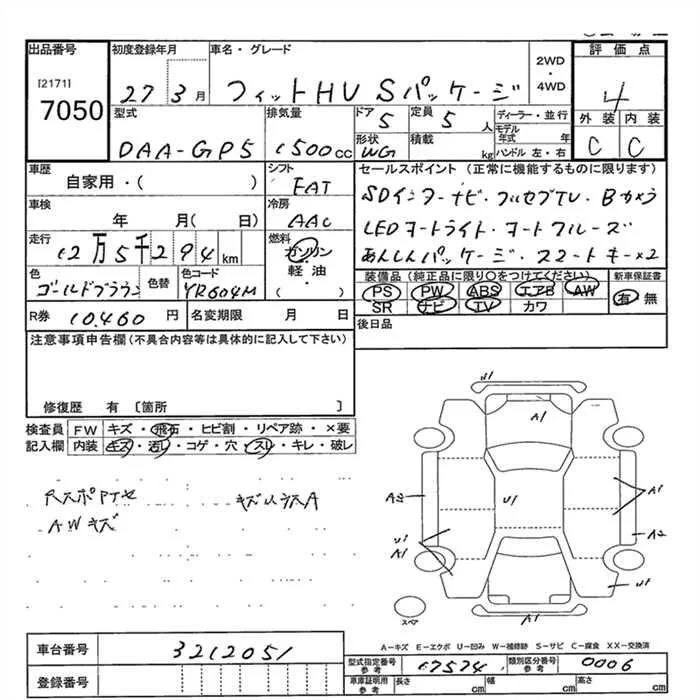 出品番号 [2171] 7050
初度登録年月 27 3月
車名・グレード フィットHV Sパッケージ
2WD・4WD
評価点 4
外装 C 内装 C
型式 DAA-GP5
排気量 1500cc
ドア 5 定員 5人
形状 WG 積載 kg
ディーラー・並行
モデル年式 年
ハンドル 左・右
車歴 自家用・( )
シフト FAT
セールスポイント (正常に機能するものに限ります)
SDインターナビ・フルセグTV・Bカメラ
LEDヘッドライト・オートクルーズ
あんしんパッケージ・スマートキー×2
車検 年 月( 日)
冷房 AAC
走行 12万5千294km
燃料 ガソリン・軽油・( )
色 ゴールドブラウン 色替
色コード YR604M
装備品 (純正品に限り○をつけてください) 新車保証書
PS PW ABS エアB AW 有・無
SR ナビ TV カワ
R券 10,460円 名変期限 月 日
後日品
注意事項申告欄(不具合内容等は具体的に記入して下さい)
修復歴 有 〔箇所 〕
検査員記入欄
FW キズ・飛石・ヒビ割・リペア跡・×要
内装 キズ・汚レ・コゲ・穴・スレ・キレ・破レ
AWキズ
U1
A1
A2
U1
A1
U1
A1
A2
U1
A1
スペア
A-キズ E-エクボ U-凹み W-補修跡 S-サビ C-腐食 XX-交換済
車台番号 3212051
登録番号
型式指定番号 参考 17574 類別区分番号 参考 0006
車庫証明用 参考 長さ cm 幅 cm 高さ cm